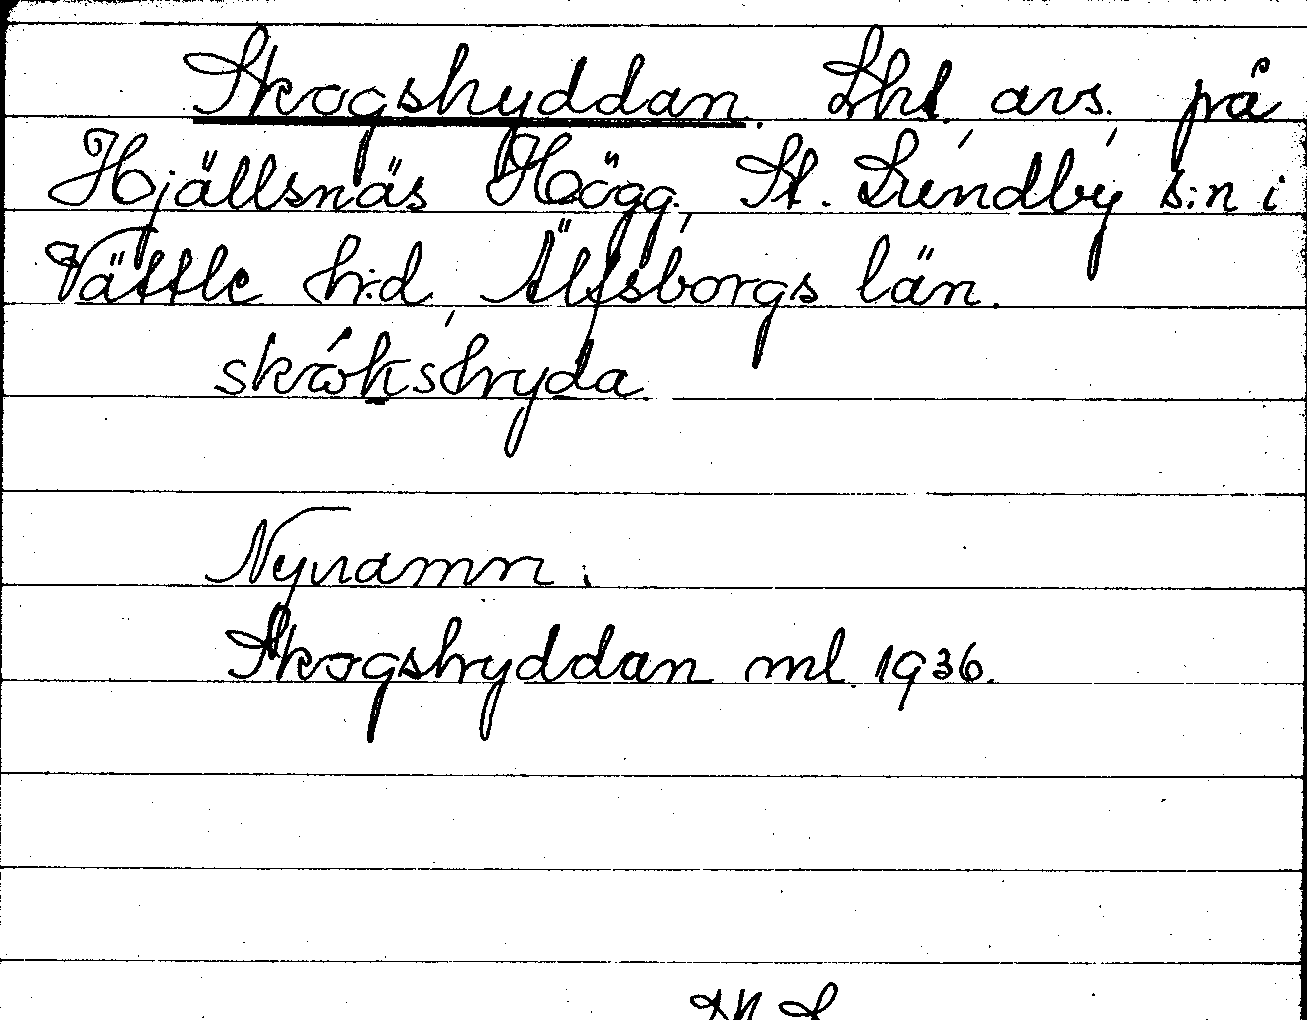 Skogshyddan. Lht. avs. på
Hjällsnäs Högg., St. Lundby s:n i
Vättle h:d, Älfsborgs län.
skógkshyda
Nynamn.
Skogshyddan ml. 1936.